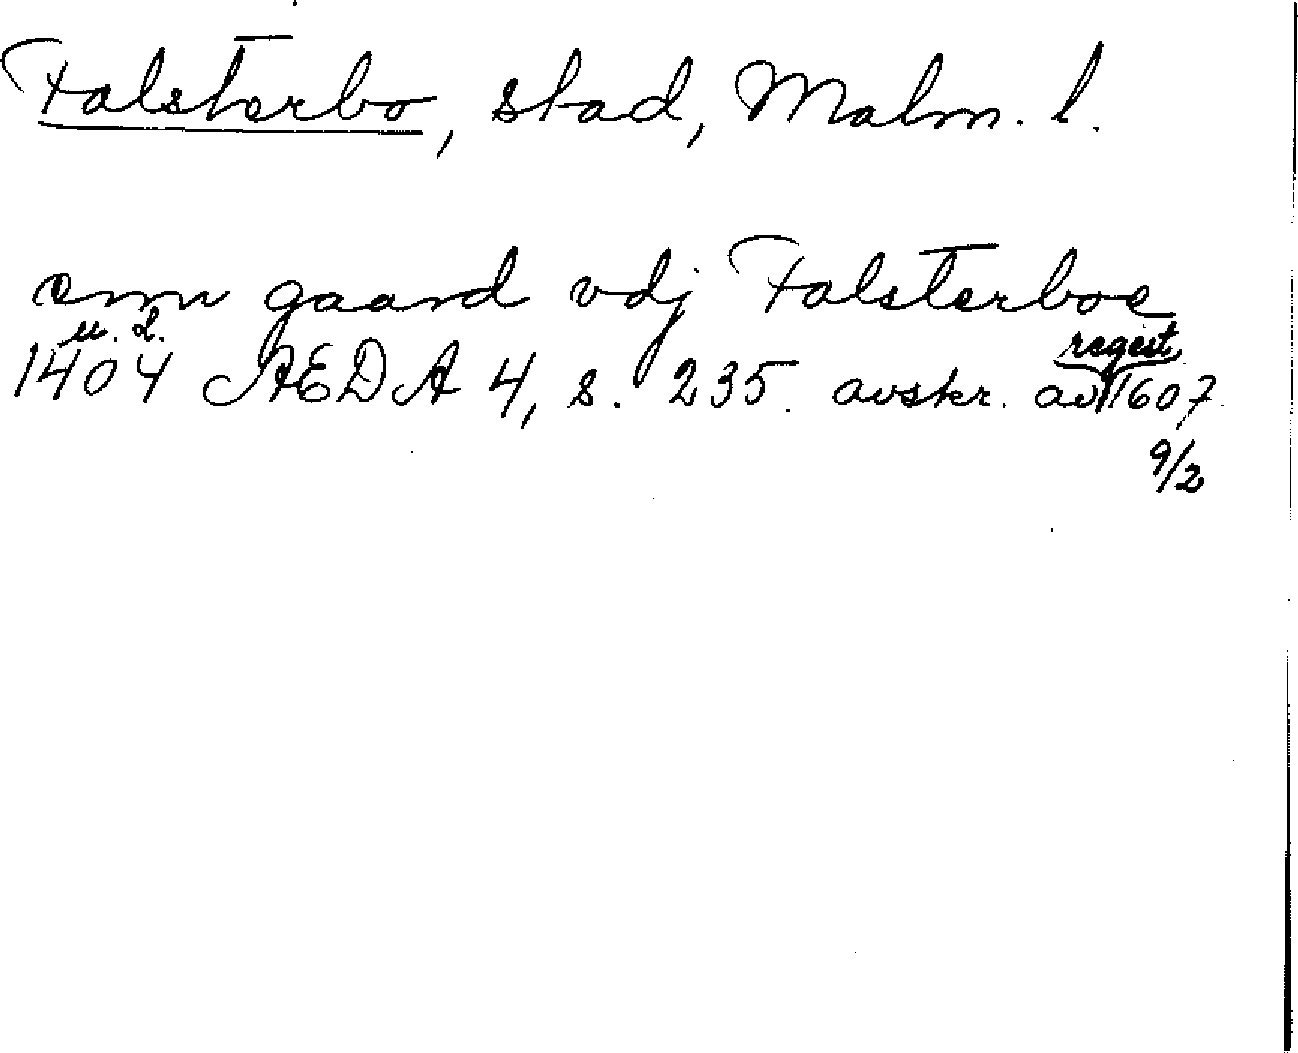 Falsterbo, stad, Malm. l.
enn gaard vdj Falsterboe
u. d.
1404 ÆDA 4, s. 235. avskr. av regest 1607
9/2